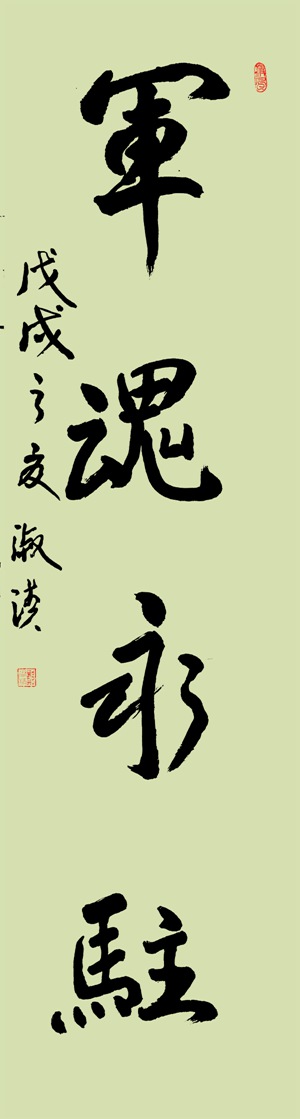 軍魂永駐
戊戌之夏 淑濤